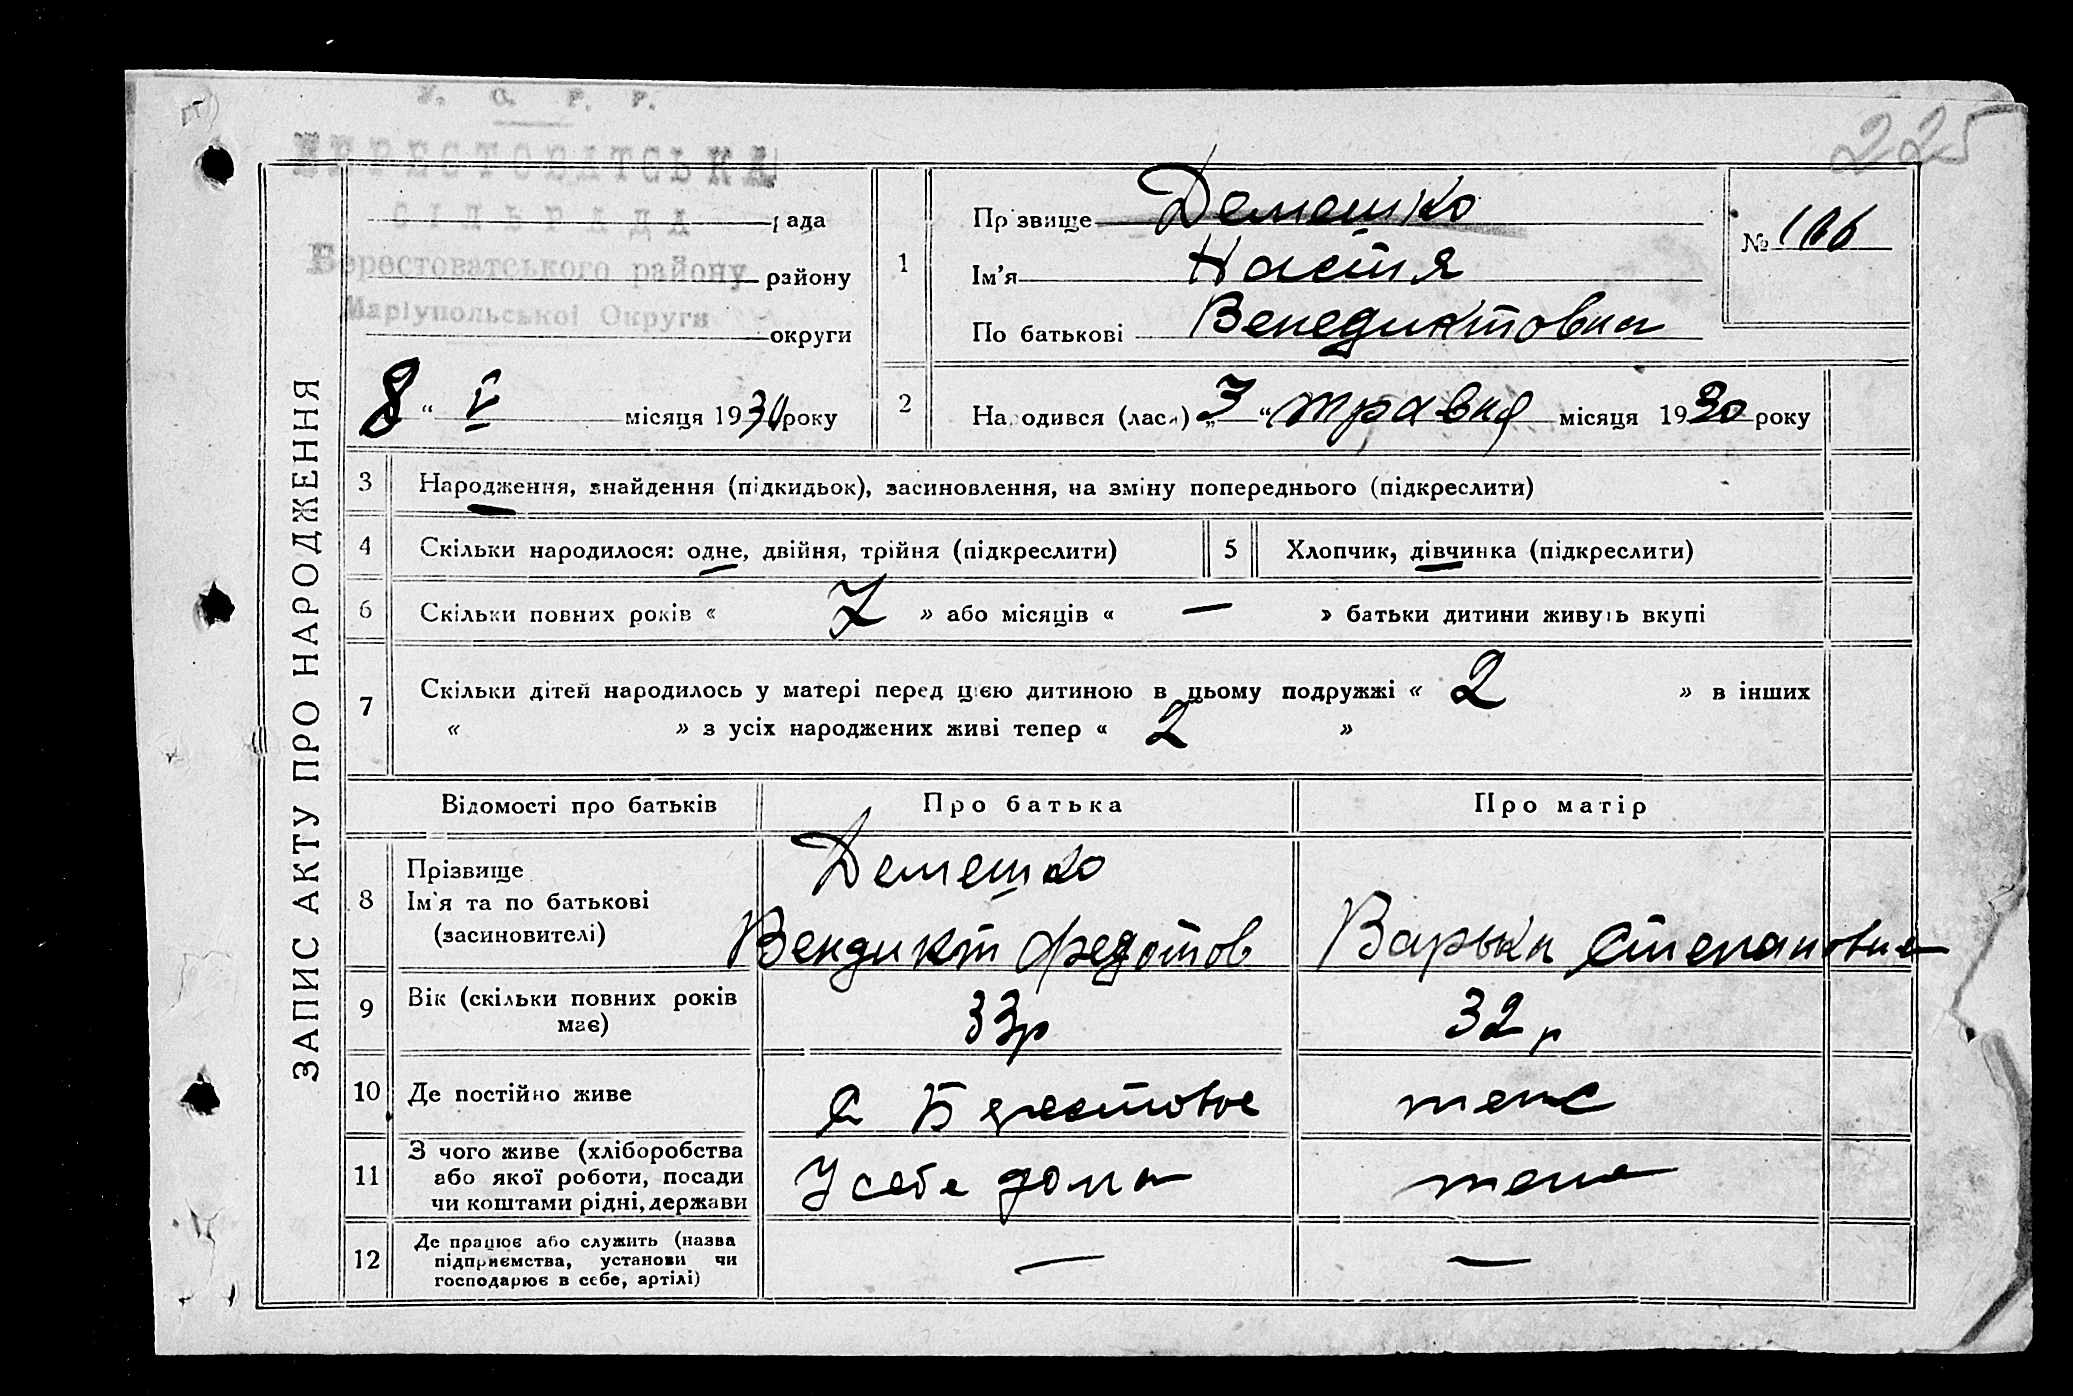 225
У. С. Р. Р.
БЕРЕСТОВАТСЬКА
СІЛЬРАДА рада
Берестоватського району району
Маріупольської Округи
округи
8 “ V місяця 1930 року
ЗАПИС АКТУ ПРО НАРОДЖЕННЯ
1 Прізвище Демешко
Ім’я Настя
По батькові Венедиктовна
№ 166
2 Народився (лася) „ 3 “ травня місяця 1930 року
3 Народження, знайдення (підкидьок), засиновлення, на зміну попереднього (підкреслити)
4 Скільки народилося: одне, двійня, трійня (підкреслити)
5 Хлопчик, дівчинка (підкреслити)
6 Скільки повних років « 7 » або місяців « — » батьки дитини живуть вкупі
7 Скільки дітей народилось у матері перед цією дитиною в цьому подружжі « 2 » в інших
« » з усіх народжених живі тепер « 2 »
Відомості про батьків Про батька Про матір
8 Прізвище
Ім’я та по батькові
(засиновителі)
Демешко
Вендикт Федотов
Варька Степановна
9 Вік (скільки повних років
має)
33р
32р
10 Де постійно живе С Берестовое
11 З чого живе (хліборобства
або якої роботи, посади
чи коштами рідні, держави
У себе дома
12 Де працює або служить (назва
підприємства, установи чи
господарює в себе, артілі)
— —